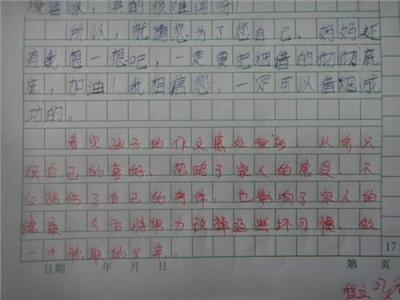 味，真的很难闻呀！
所以，就请您为了您自己、妈妈还
有我想一想吧，一定要把烟借的彻彻底
底，加油！我相信您，一定可以借烟成
功的。
看完孩子的作文感处很多，从前只
顾自己的喜好，忽略了家人的感受，不
仅损伤了自己的身体，也影响了家人的
健康，今后将努力改掉这些坏习惯，做
一个称职的父亲。
17
日期 年 月 日 第 页